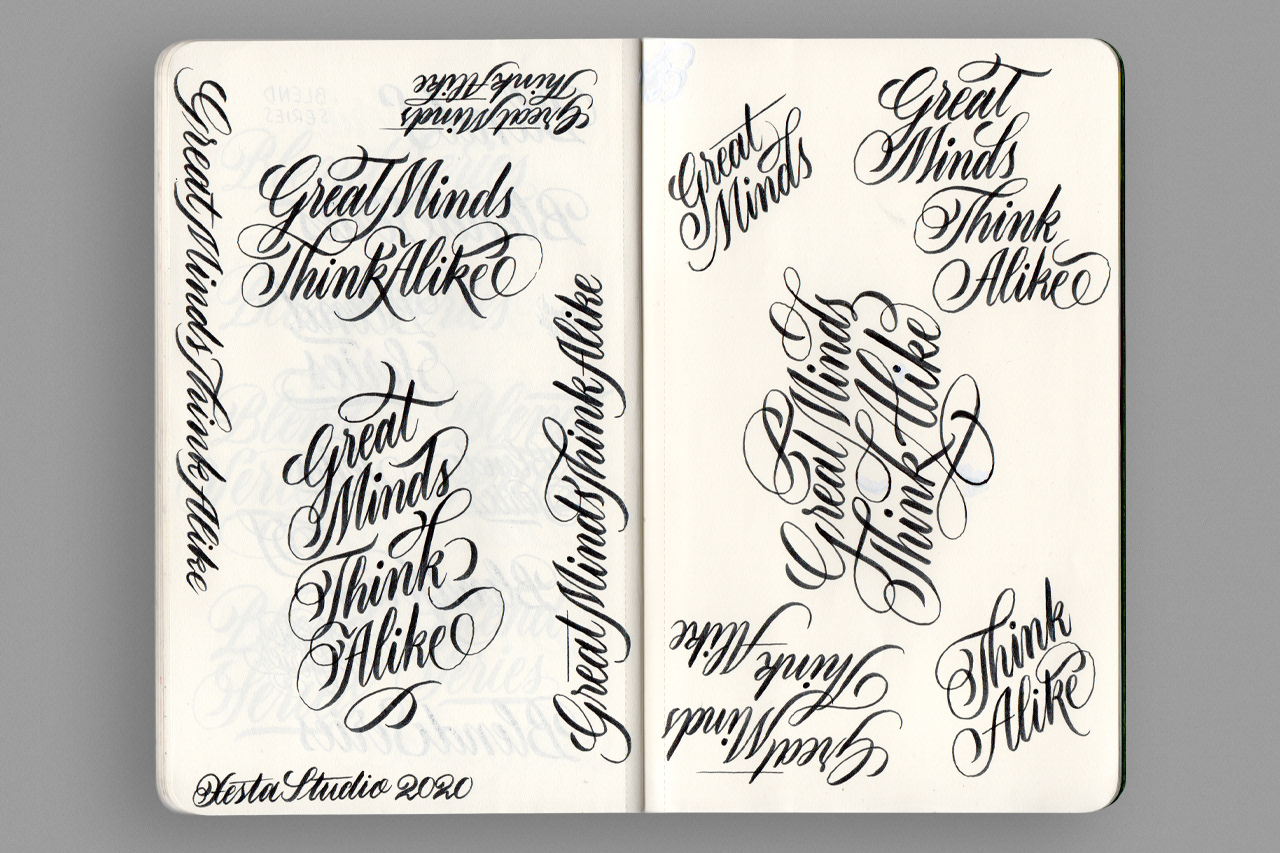 Great Minds Think Alike
Great Minds
Think Alike
Great Minds
Think Alike
Great
Minds
Think
Alike
Great Minds Think Alike
Xesta Studio 2020
BLEND
SERIES
Great
Minds
Great
Minds
Think
Alike
Great Minds
Think Alike
Great Minds
Think
Alike
Think
Alike